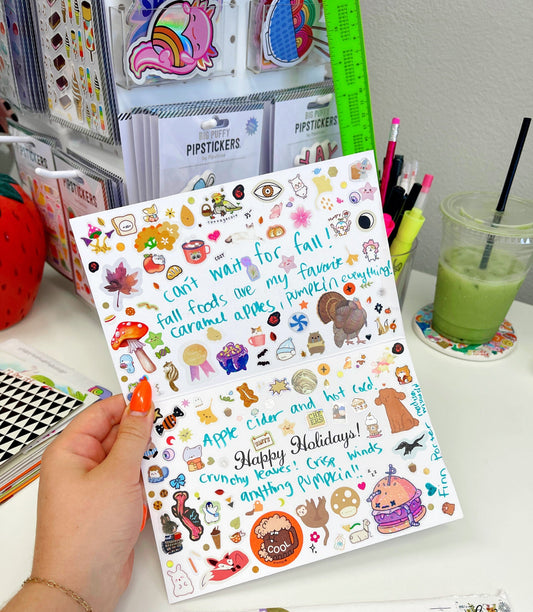 BIG PUFFY
PIPSTICKERS
BIG PUFFY
PIPSTICKERS
YAY
can't wait for fall!
fall foods are my favorite
caramel apples, pumpkin everything!
Apple cider and hot cocl.
Happy Holidays!
Crunchy leaves! Crisp winds
anything pumpkin!!
COOL
Finn